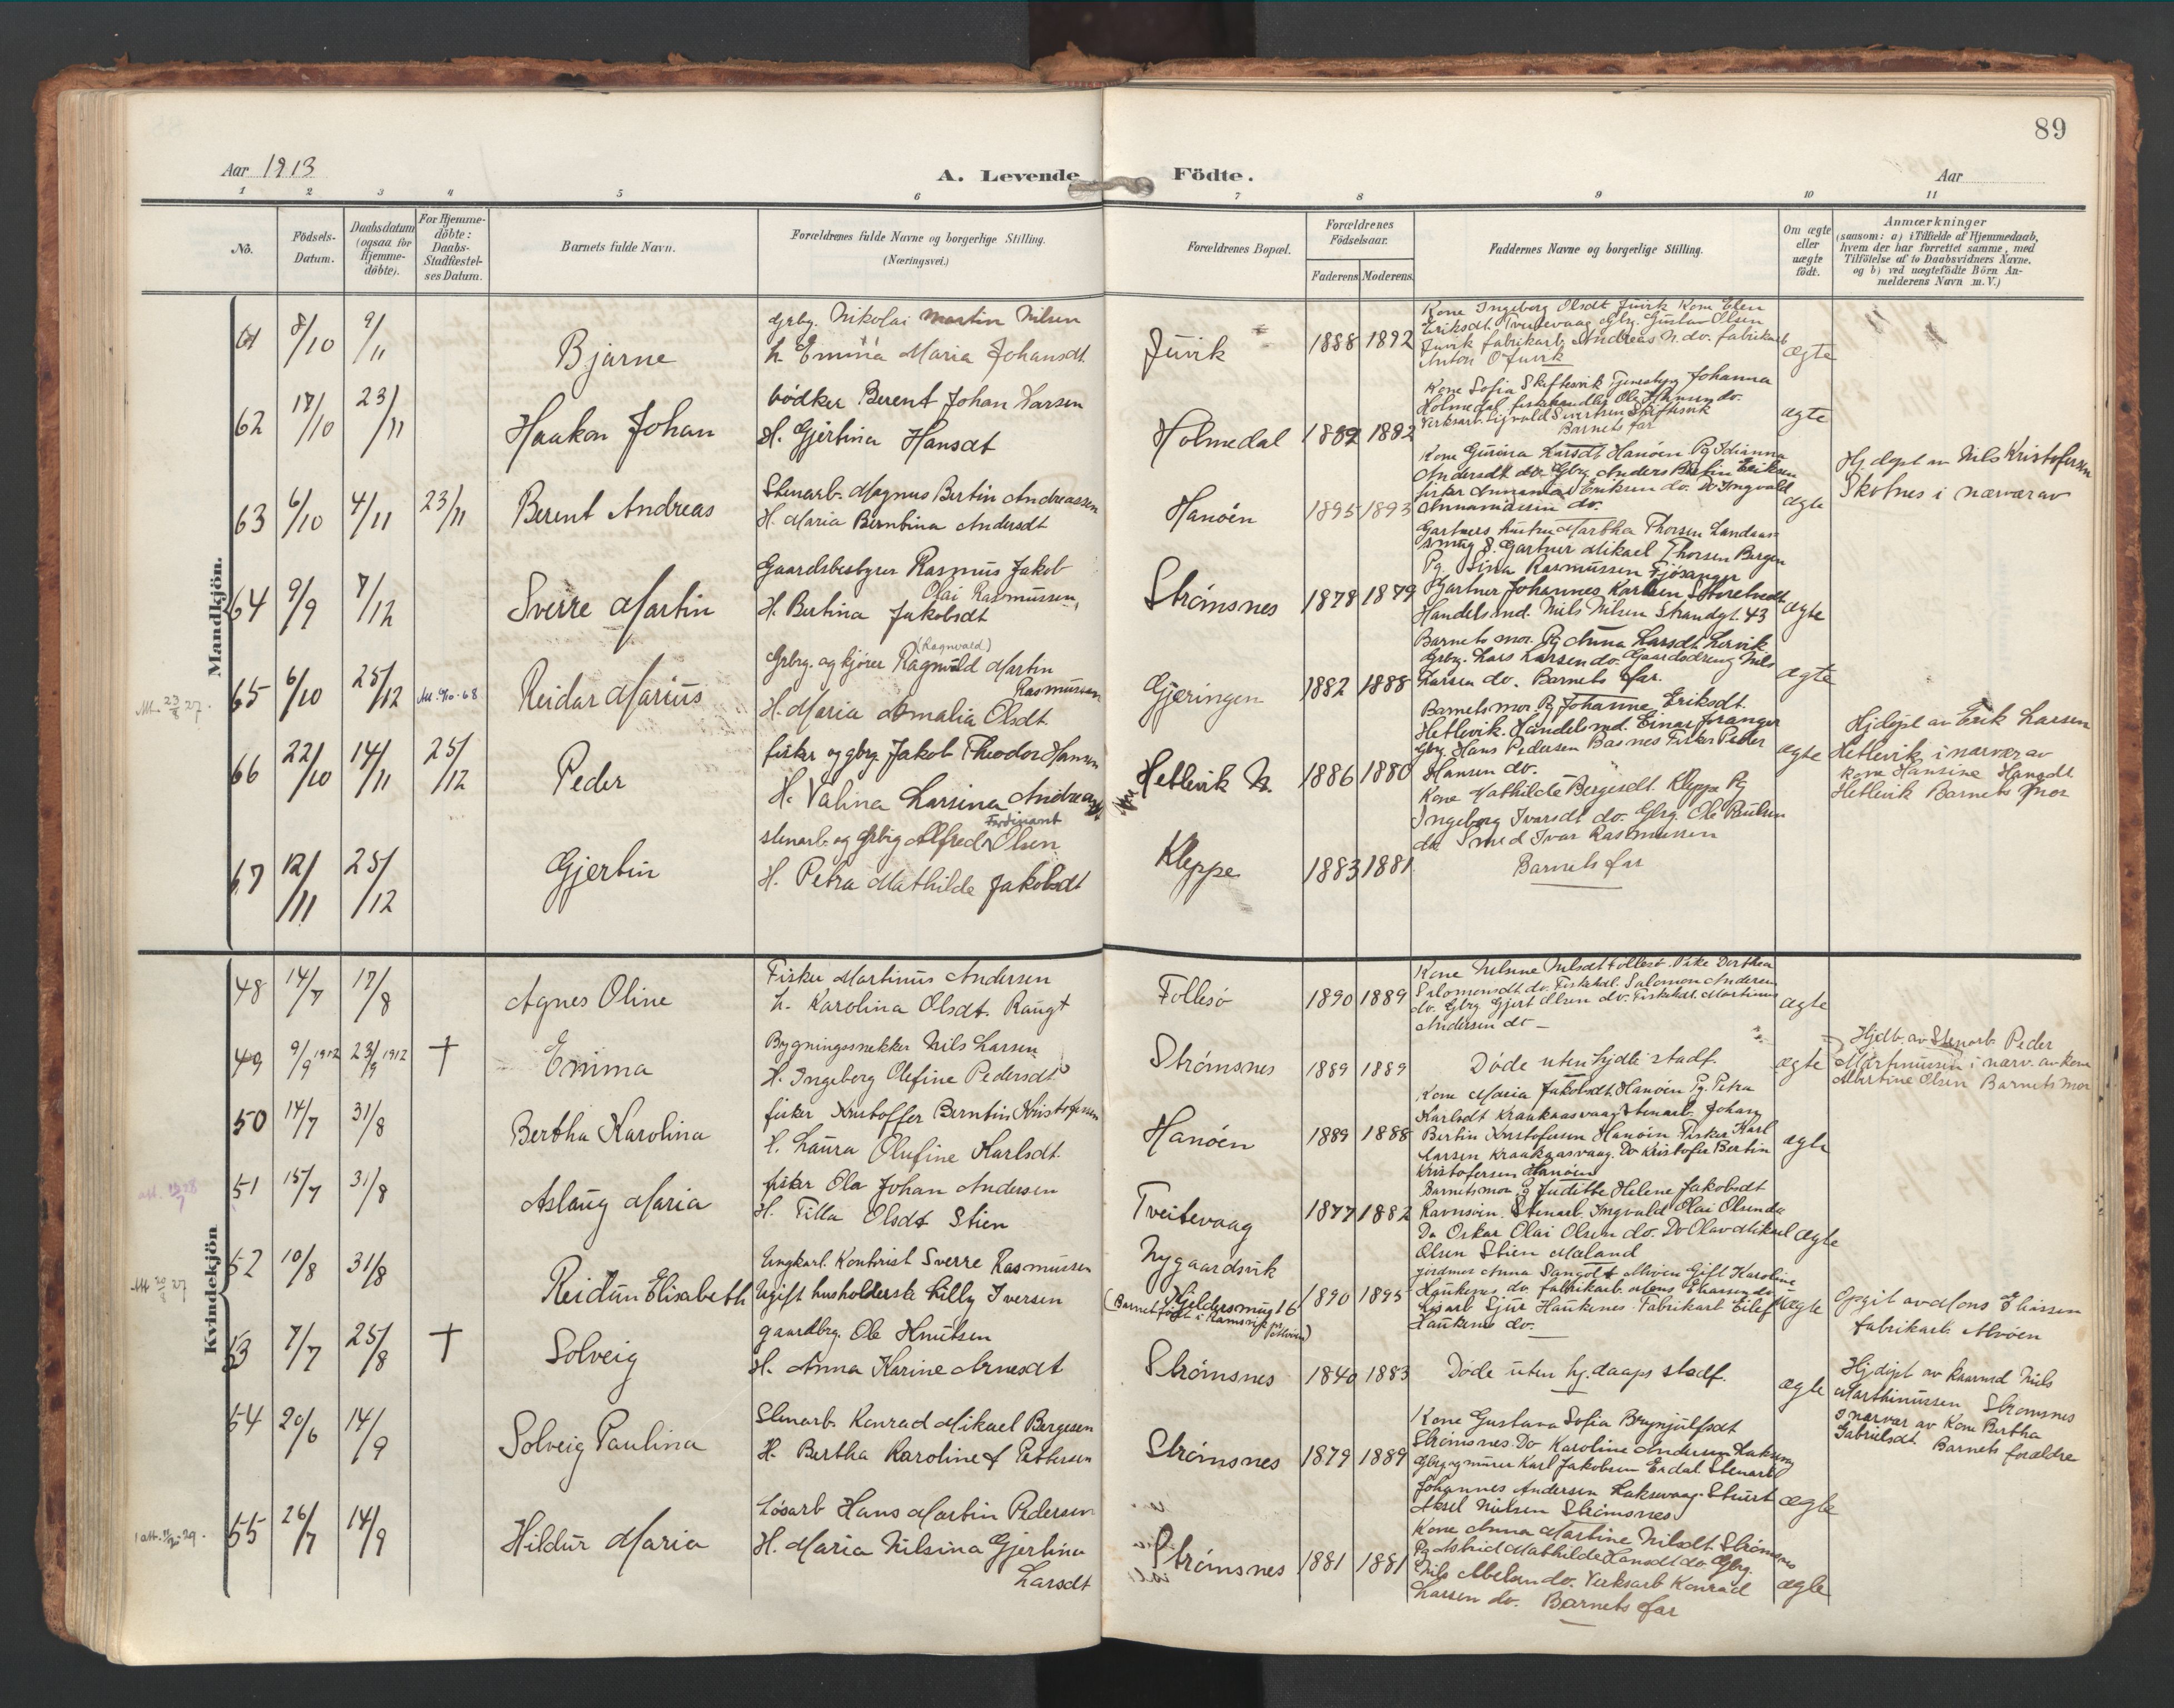 89
Aar 1913
A. Levende Födte.
Aar
1 2 3 4 5 6 7 8 9 10 11
Nö.
Födsels-Datum.
Daabsdatum (ogsaa for Hjemme-döbte).
For Hjemme-döbte: Daabs-Stadfæstel-ses Datum.
Barnets fulde Navn.
Forældrenes fulde Navne og borgerlige Stilling.
(Næringsvei.)
Forældrenes Bopæl.
Forældrenes Födselsaar.
Faderens. Moderens.
Faddernes Navne og borgerlige Stilling.
Om ægte eller uægte födt.
Anmærkninger
(saasom: a) i Tilfælde af Hjemmedaab,
hvem der har forrettet samme, med
Tilföielse af to Daabsvidners Navne.
og b) ved uægtefödte Börn An-
melderens Navn m.V.)
Mandkjön.
61 8/10 9/11 Bjarne
Grbg. Nikolai Martin Nilsen
h. Emma Maria Johansdt
Juvik 1888 1892
Kone Ingeborg Olsdt Juvik Kone Elen
Eriksdt. Tveitevaag Gbrg. Gustav Olsen
Juvik fabrikarb. Andreas N. do. fabrikarb
Anton O Juvik
ægte
62 17/10 23/11 Haakon Johan
bödker Berent Johan Larsen
H. Gjertina Hansdt
Holmedal 1882 1882
Kone Sofia Skiftesvik Johanna
Holmedal fiskehandler Ole Hansen do.
Verksarb. Sigvald Sivertsen Skiftesvik
Barnets far
ægte
63 6/10 4/11 23/11 Berent Andreas
Stenarb. Magnus Bertin Andreassen
H. Maria Berntina Andersdt
Hanöen 1895 1893
Kone Gurina Larsdt Hanöen Pg
Andersdt do. Gbrg Anders Bertin Eriksen
fisker Eriksen do. Do Ingvald
do.
ægte
Hjdöpt av Nils Kristofersen
Skotnes i nærvær av
64 9/9 7/12 Sverre Martin
Gaardsbestyrer Rasmus Jakob
Olai Rasmussen,
H. Bertina Jakobsdt
Strömsnes 1878 1879
Gartners hustru Martha Thorsen Landaas
8. Gartner Mikael Thorsen Bergen
Pg. Sina Rasmussen Fjösanger
Gartner Johannes Karlsen Storetvedt
Handelsmd. Nils Nilsen Strandgt. 43
ægte
65 6/10 25/12 Att. 9/10-68 Reidar Marius
(Ragnvald)
Grbrg. og kjörer Ragnvald Martin
Rasmussen
H. Maria Amalia Olsdt
Gjeringen 1882 1888
Barnets mor. Pg Anna Larsdt Lervik
Grbrg. Lars Larsen do. Gaardsdreng Nils
Larsen do. Barnets far.
ægte
66 22/10 14/11 25/12 Peder
fisker og gbrg. Jakob Theodor Hansen
H. Valina Larsina Andreasdt
Hetlevik N. 1886 1880
Barnets mor Pg Johanne Eriksdt.
Hetlevik. Handelsmd. Einar Joranger
Gbrg. Hans Pedersen Basnes Fisker Peder
Hansen do.
ægte
Hjdöpt av Erik Larsen
Hetlevik i nærvær av
Kone Hansine Hansdt
Hetlevik Barnets Mor
67 12/11 25/12 Gjertin
Ferdinant
stenarb. og Grbrg Alfred Olsen
H. Petra Mathilde Jakobsdt
Kleppe 1883 1881
Kone Mathilde Bergesdt. Kleppe Pg
Ingeborg Ivarsdt do. Gbrg. Ole Paulsen
do Smed Ivar Rasmussen
Barnets far
Kvindekjön
48 14/7 17/8 Agnes Oline
Fisker Martinus Andersen
h. Karolina Olsdt.
Follesö 1890 1889
Kone Nilsine Nilsdt Follesö. Pike Dorthea
Salomonsdt. do. Fiskehdl. Salomon Andersen
do. Gbrg Gjert Olsen do. Fiskehdl. Martinus
Andersen do —
ægte
49 9/9 1912 23/9 1912 † Emma
Bygningssnekker Nils Larsen
H. Ingeborg Olefine Pedersdt
Strömsnes 1889 1889
Döde uten stadf.
ægte
Hjdb. av Stenarb. Peder
Martinussen i nærv. av kone
Martine Olsen Barnets mor
50 14/7 31/8 Bertha Karolina
fisker Kristoffer Berntin Kristofersen
H. Laura Olufine Karlsdt.
Hanöen 1889 1888
Kone Maria Jakobsdt Hanöen Pg. Petra
Karlsdt Kraakaasvaag Stenarb. Johan
Bertin Kristofersen Hanöen Fisker Karl
Larsen Kraakaasvaag. Do Kristofer Bertin
Kristofersen Hanöen
ægte
51 15/7 31/8 Aslaug Maria
fisker Ola Johan Andersen
H. Tilla Olsdt Stien
Tveitevaag 1877 1882
Barnets mor Pg Juditte Helene Jakobsdt
Ravnöen. Stenarb. Ingvald Olai Olsen do
Do Oskar Olai Olsen do. Do Olav Mikael
Olsen Stien Mæland
ægte
52 10/8 31/8 Reidun Elisabeth
Ungkarl. Kontorist Sverre Rasmussen
Ugift husholderske Lilly Iversen
Nygaardsvik
Kjeldersmug 16
(Barnet födt i Ramsvik Alvöen)
1890 1895
Jordmor Anna Alvöen Gift Karoline
Haukenes do. fabrikarb. Mons Eliassen do
Lösarb Sjur Haukenes. Fabrikarb Eilef
Haukenes do.
uægte
Opgit av Mons Eliassen
fabrikarb. Alvöen
53 7/7 25/8 † Solveig
gaardbrg. Ole Knutsen
H. Anna Karine Arnesdt
Strömsnes 1840 1883
Döde uten hj.daaps stadf.
ægte
Hjdöpt av Nils
Marthinussen Strömsnes
I nærvær av Kone Bertha
Gabrielsdt. Barnets forældre
54 20/6 14/9 Solveig Paulina
Stenarb. Konrad Mikael Bergesen
H. Bertha Karoline Pettersen
Strömsnes 1879 1889
Kone Gustava Sofia Brynjulfsdt
Strömsnes. Do Karoline Andersen Laksevaag
Gbrg og murer Karl Jakobsen Erdal. Stenarb
Johannes Andersen Laksevaag.
Aksel Nilsen Strömsnes
ægte
55 26/7 14/9 Hildur Maria
Lösarb Hans Martin Pedersen
H. Maria Nilsina Gjertina
Larsdt
Strömsnes 1881 1881
Kone Anna Martine Nilsdt Strömsnes
Pg Astrid Mathilde Hansdt do. Gbrg.
Nils Abelsen do. Verksarb Konrad
Larsen do. Barnets far
ægte